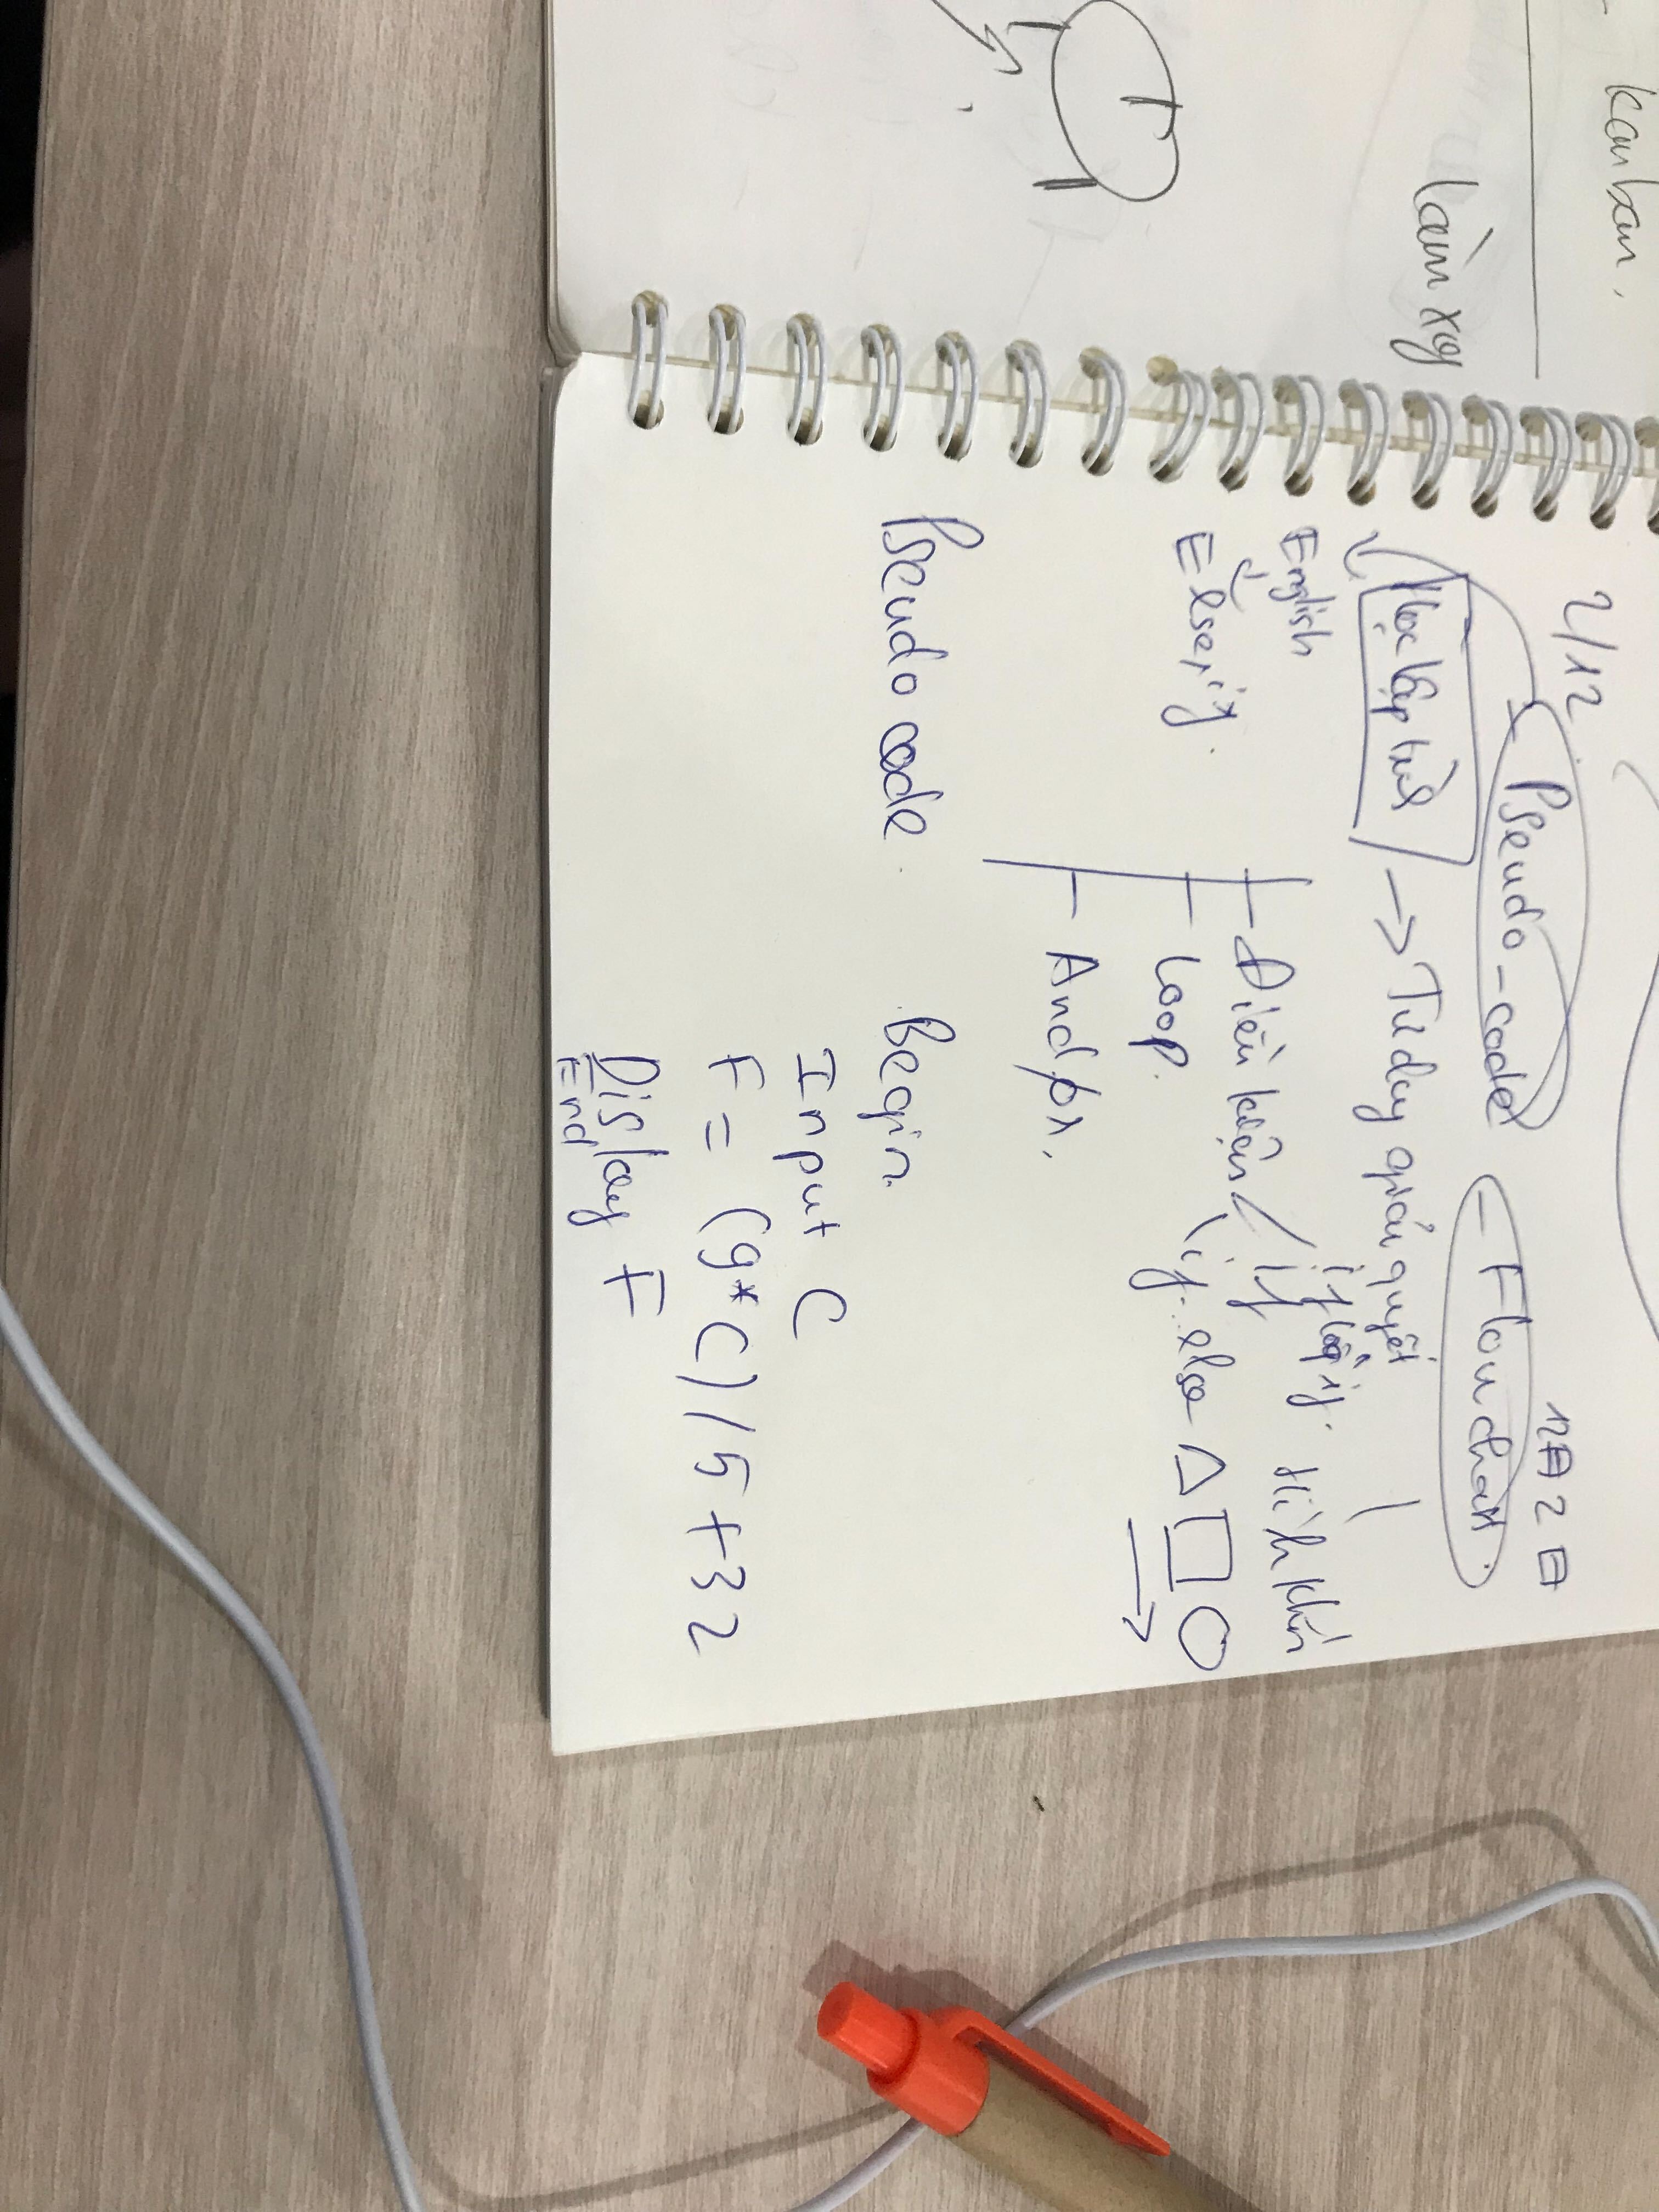 - Kanban.
làm xog
2/12
12月2日
- Pseudo-code
- Flowchart
Học lập trình → Tư duy giải quyết
English
Else, if.
- Điều kiện
if lồng if.
if
if else
- Loop.
- And/or.
Hình khối
Pseudo code
Begin
Input C
F = (9*C)/5+32
Display F
End